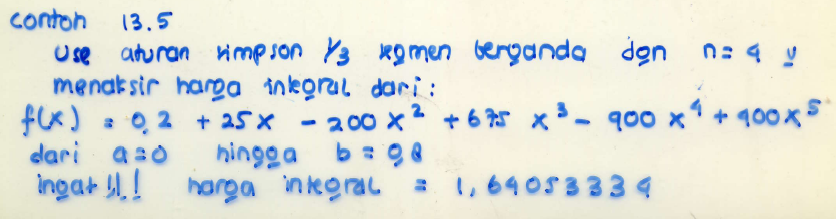 contoh 13.5
use aturan simpson 1/3 segmen berganda dgn n = 4 u
menaksir harga integral dari :
f(x) = 0,2 + 25x - 200x² + 675 x³ - 900 x⁴ + 400x⁵
dari a=0 hingga b = 0,8
ingat !!! harga integral = 1,64053334